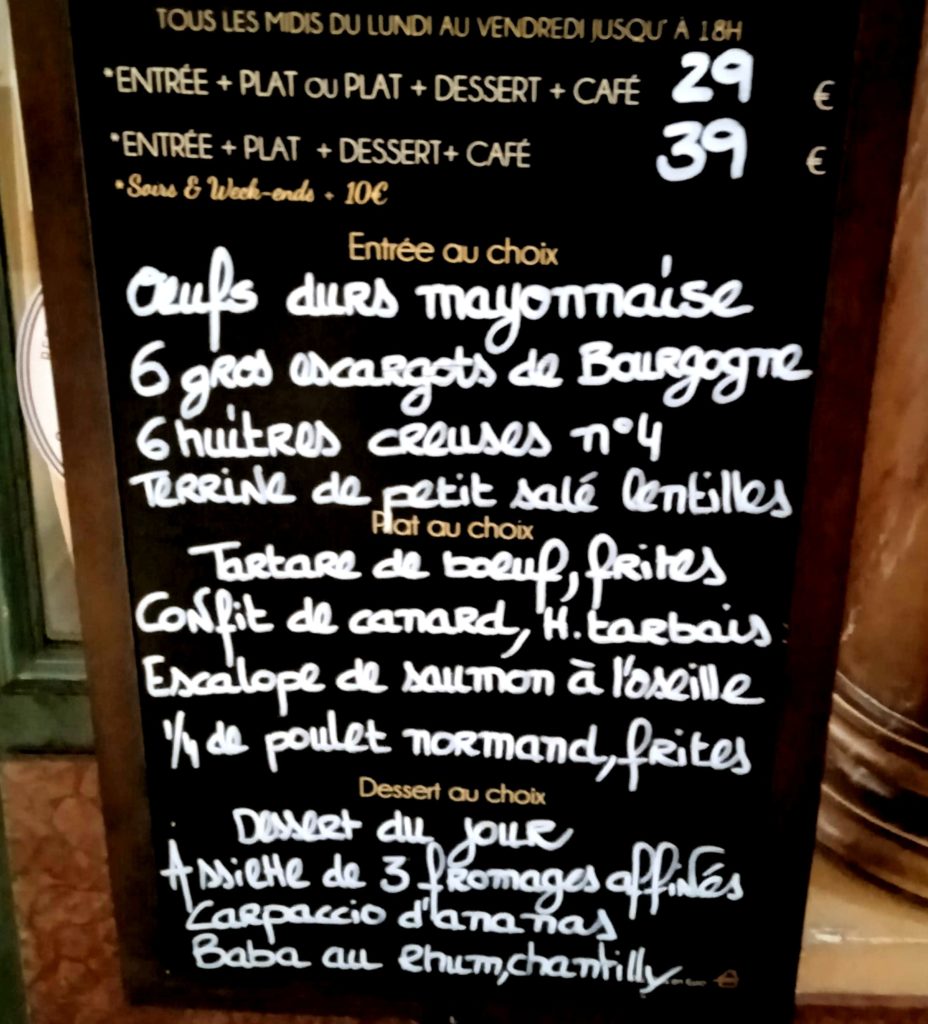 TOUS LES MIDIS DU LUNDI AU VENDREDI JUSQU' À 18H
*ENTRÉE + PLAT OU PLAT + DESSERT + CAFÉ 29 €
*ENTRÉE + PLAT + DESSERT+ CAFÉ 39 €
*Soirs & Week-ends + 10€
Entrée au choix
Œufs durs mayonnaise
6 gros escargots de Bourgogne
6 huîtres creuses n°4
Terrine de petit salé lentilles
Plat au choix
Tartare de boeuf, frites
Confit de canard, H. tarbais
Escalope de saumon à l'oseille
1/4 de poulet normand, frites
Dessert au choix
Dessert du jour
Assiette de 3 fromages affinés
Carpaccio d'ananas
Baba au Rhum, chantilly